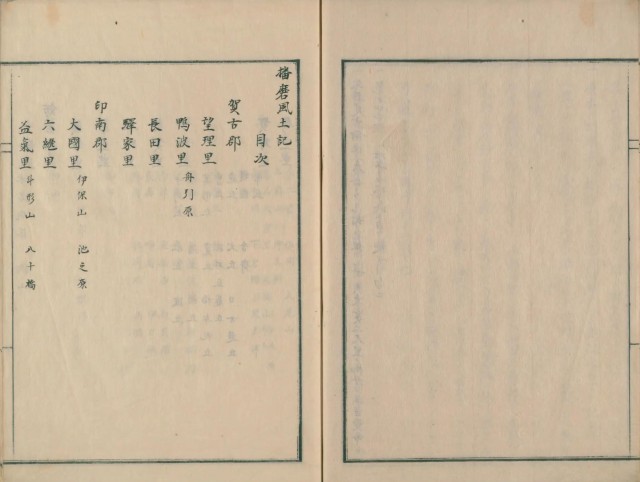 播磨風土記
目次
賀古郡
望理里
鴨波里 舟引原
長田里
驛家里
印南郡
大國里 伊保山 池之原
六継里
益氣里 斗形山 八十橋